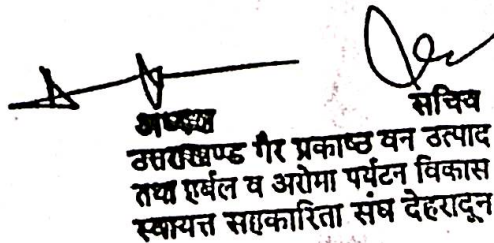 अध्यक्ष
सचिव
उत्तराखण्ड गैर प्रकाष्ठ वन उत्पाद
तथा हर्बल व अरोमा पर्यटन विकास
स्वायत्त सहकारिता संघ देहरादून